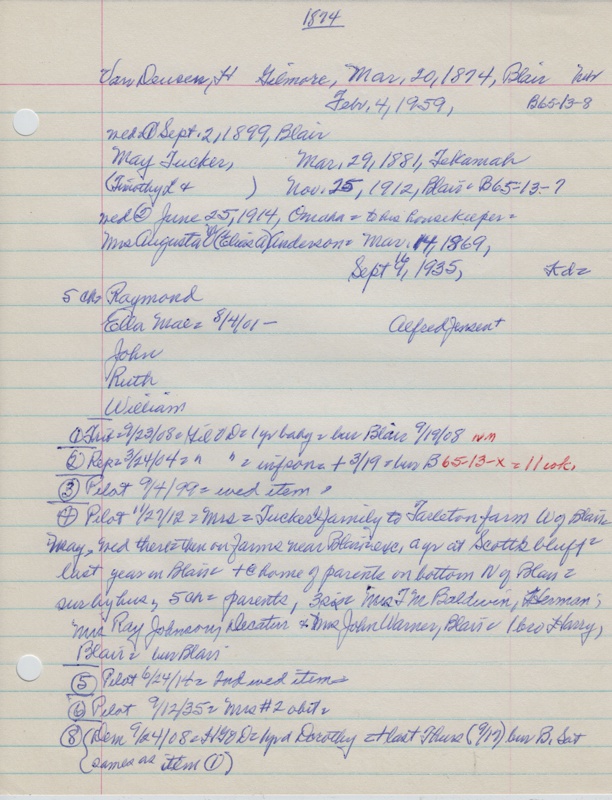 1874
Van Deusen, H Gilmore, Mar. 20, 1874, Blair Nebr
Feb. 4, 1959, B65-13-8
wed ① Sept. 2, 1899, Blair
May Tucker, Mar. 29, 1881, Tekamah
(Timothy L & ) Nov. 25, 1912, Blair = B65-13-7
wed ② June 25, 1914, Omaha = to his housekeeper =
Mrs Augusta (Elias A) Anderson = Mar. 14, 1869,
Sept 9, 1935, Kd=
5 ch= Raymond
Ella Mae = 8/4/01 - Alfred Jensen+
John
Ruth
William
① Trib = 9/23/08 = Gil V D = 1 yr baby = bur Blair 9/19/08 nm
② Rep = 3/24/04 = " " = inf son = + 3/19 = bur B 65-13-x = 11 wk.
③ Pilot 9/4/99 = wed item
④ Pilot 11/27/12 = Mrs = Tucker family to Tarleton farm W of Blair
May, wed there = then on farms near Blair exc, a yr at Scottsbluff =
last year in Blair = + @ home of parents on bottom N of Blair =
sur by hus, 5 ch = parents, 3 sis = Mrs F M Baldwin, Herman;
Mrs Ray Johnson, Decatur & Mrs John Warner, Blair = 1 bro Harry,
Blair = bur Blair
⑤ Pilot 6/24/14 = 2nd wed item =
⑥ Pilot 9/12/35 = Mrs #2 obit =
⑧ (Dem 9/24/08 = H G V D = 1 yr d Dorothy = + last Thurs (9/17) bur B. Sat
(same as item ①)